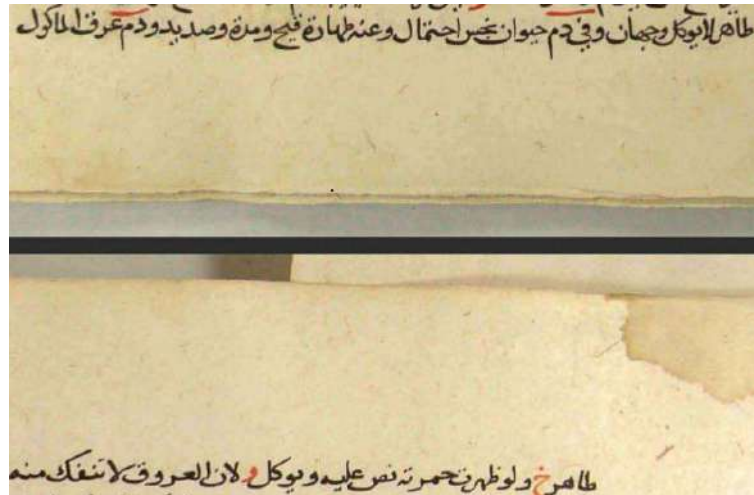 طاهر لا يوكل وجهان وفي دم حيوان نجس احتمال وعنه طهارة قيح ومدة وصديد ودم عرق الماكول
طاهر خ ولو ظهرت حمرته نص عليه ويوكل و لان العروق لا تنفك منه